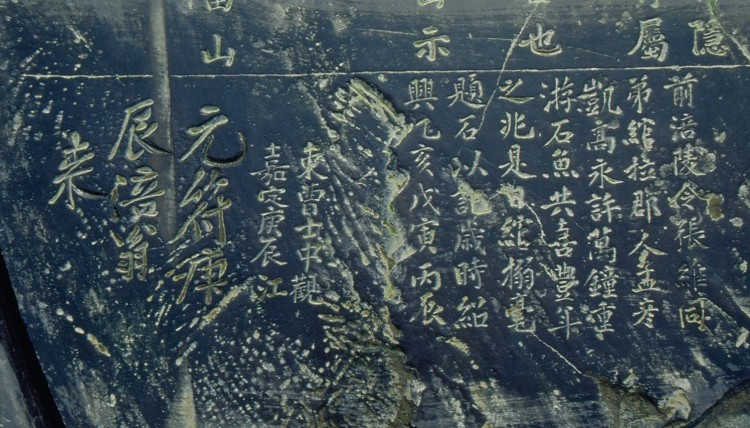 隱
屬
也
示
山
前涪陵令張維同
弟綰拉郡令孟彥
凱高永許萬鐘重
游石魚共喜豐年
之兆是日綰搦毫
題石以記歲時紹
興乙亥戊寅丙辰
嘉定庚辰江
東曹士中觀
元符庚
辰涪翁
来